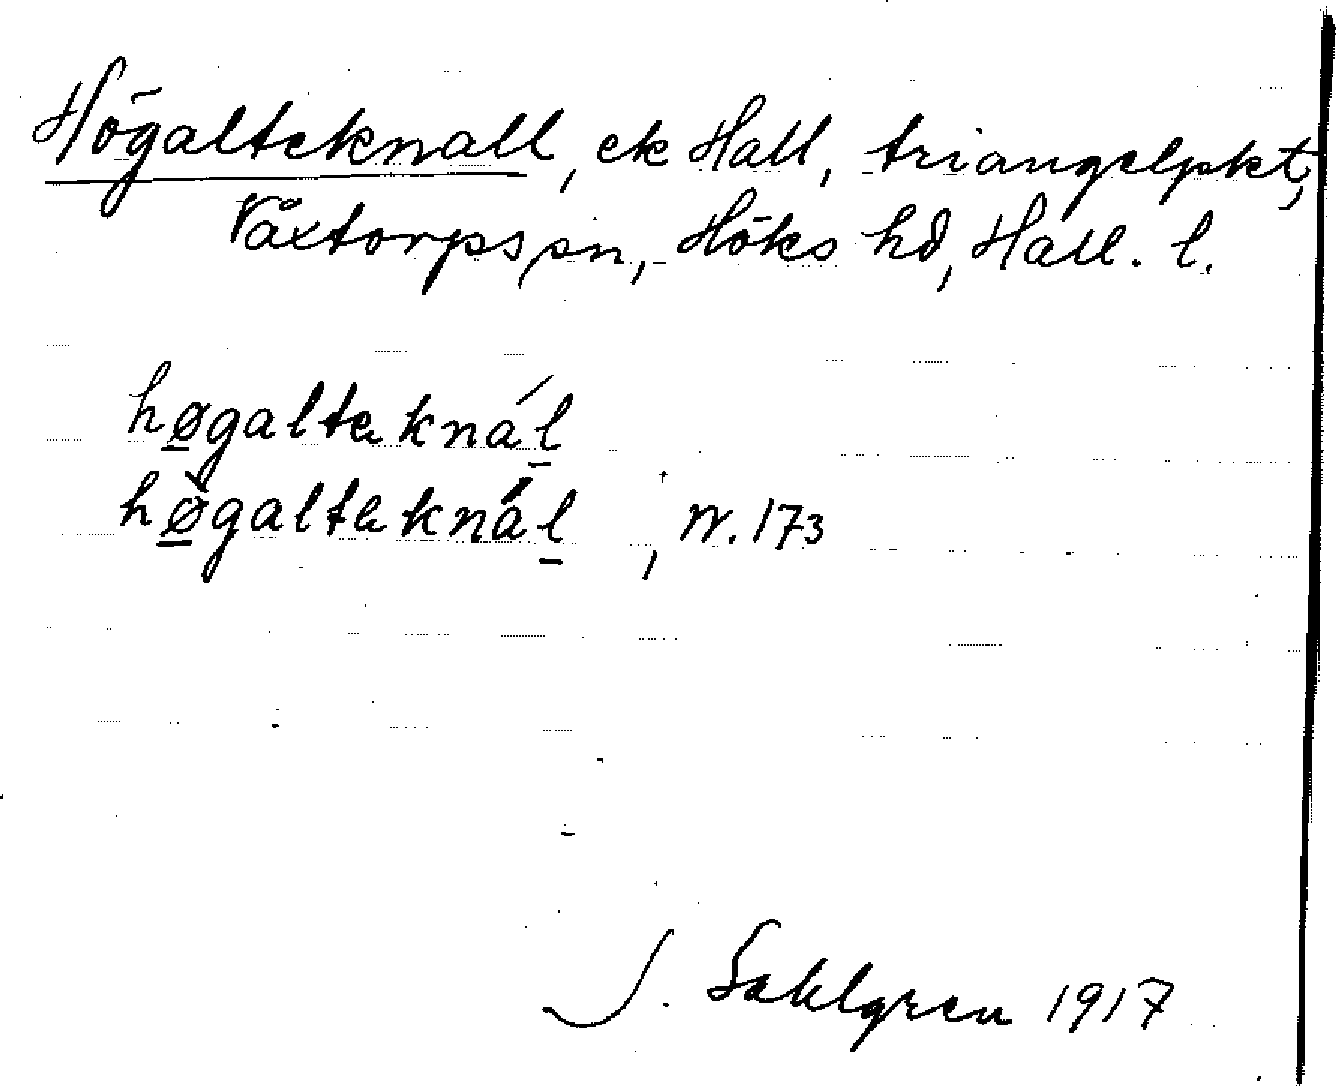 Högalteknall, ek Hall, triangelpkt,
Våxtorps sn, Höks hd, Hall. l.
hø̲galteknál̲
hø̲̌galteknál̲, N. 173
J. Sahlgren 1917